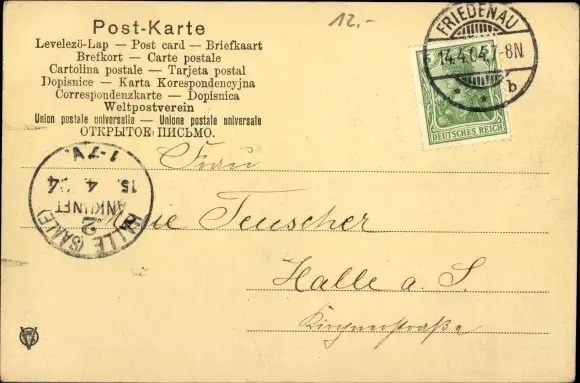 Post-Karte
Levelező-Lap — Post card — Briefkaart
Brefkort — Carte postale
Cartolina postale — Tarjeta postal
Dopisnice — Karta Korespondencyjna
Correspondenzkarte — Dopisnica
Weltpostverein
Union postale universelle — Unione postale universale
ОТКРЫТОЕ ПИСЬМО.
12.-
FRIEDENAU
14.4.04.7-8N
b
DEUTSCHES REICH
1-7V.
15. 4. 04
ANKUNFT
2
HALLE (SAALE)
Frau
Teuscher
Halle a. S.